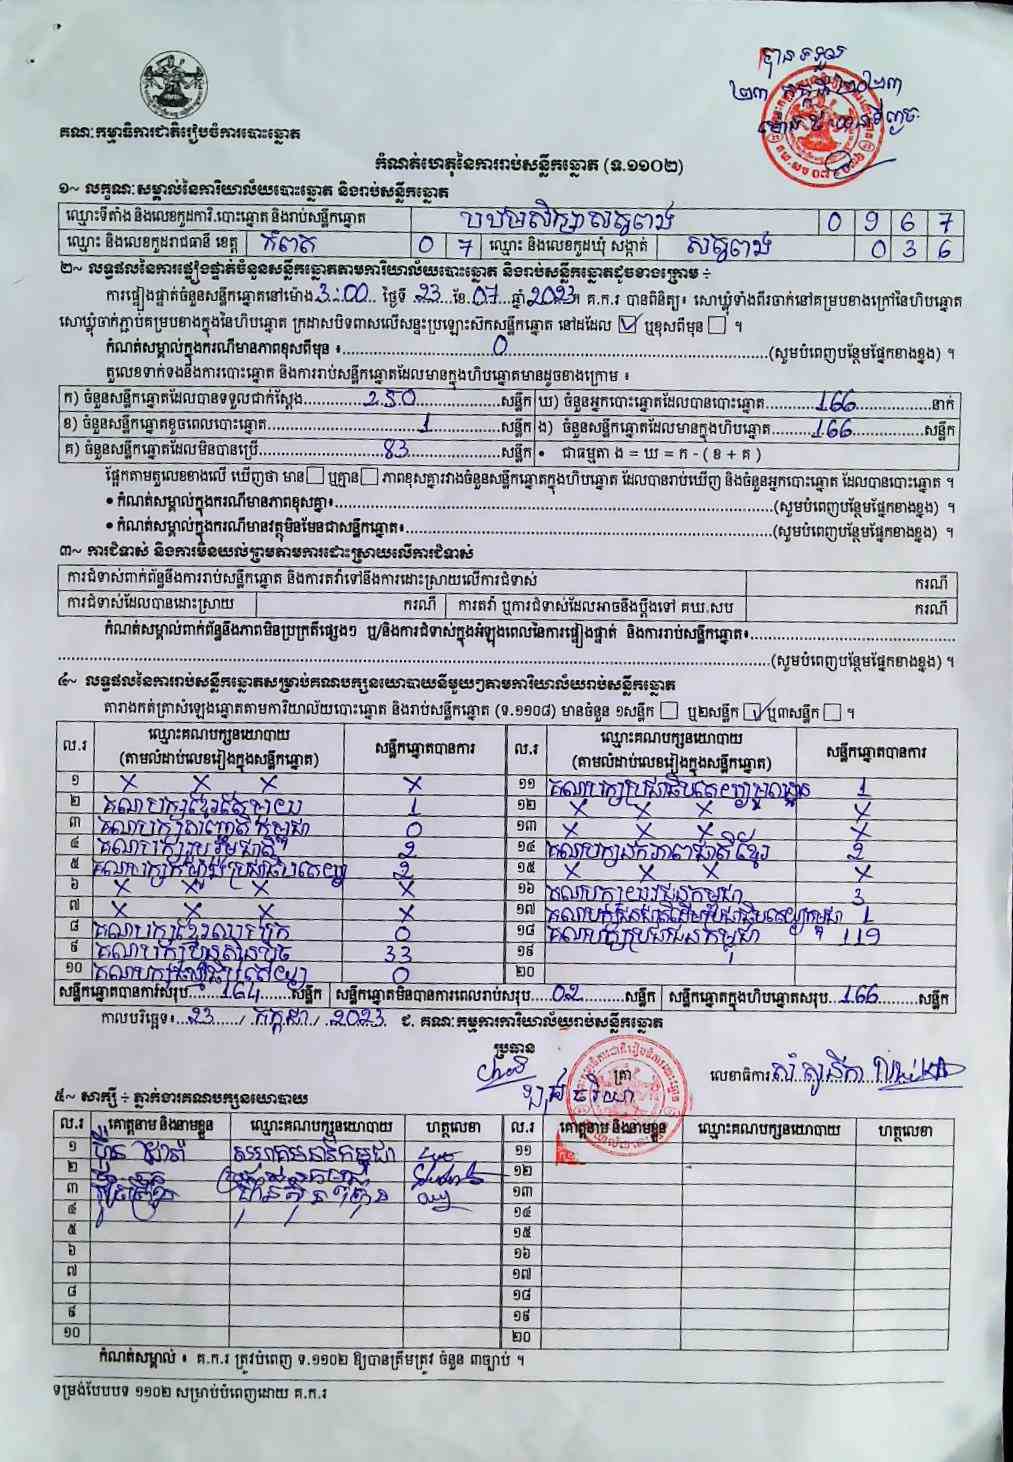 បានទទួល
២៣ កក្កដា ២០២៣
គណៈកម្មាធិការជាតិរៀបចំការបោះឆ្នោត
កំណត់ហេតុនៃការរាប់សន្លឹកឆ្នោត (ទ.១១០២)
១~ លក្ខណៈសម្គាល់នៃការិយាល័យបោះឆ្នោត និងរាប់សន្លឹកឆ្នោត
ឈ្មោះទីតាំង និងលេខកូដការិ.បោះឆ្នោត និងរាប់សន្លឹកឆ្នោត បឋមសិក្សាសត្វពង់ 0 9 6 7
ឈ្មោះ និងលេខកូដរាជធានី ខេត្ត កំពត 0 7 ឈ្មោះ និងលេខកូដឃុំ សង្កាត់ សត្វពង់ 0 3 6
២~ លទ្ធផលនៃការផ្ទៀងផ្ទាត់ចំនួនសន្លឹកឆ្នោតតាមការិយាល័យបោះឆ្នោត និងរាប់សន្លឹកឆ្នោតដូចខាងក្រោម ÷
ការផ្ទៀងផ្ទាត់ចំនួនសន្លឹកឆ្នោតនៅម៉ោង 3:00 ថ្ងៃទី 23 ខែ 07 ឆ្នាំ 2023។ គ.ក.រ បានពិនិត្យ៖ សោឃ្លុំទាំងពីរចាក់នៅគម្របខាងក្រៅនៃហិបឆ្នោត
សោឃ្លុំចាក់ភ្ជាប់គម្របខាងក្នុងនៃហិបឆ្នោត ក្រដាសបិទពាសលើសន្ទះប្រឡោះស៊កសន្លឹកឆ្នោត នៅដដែល ☑ ឬខុសពីមុន ☐ ។
កំណត់សម្គាល់ក្នុងករណីមានភាពខុសពីមុន ៖ 0 (សូមបំពេញបន្ថែមផ្នែកខាងខ្នង) ។
តួលេខទាក់ទងនឹងការបោះឆ្នោត និងការរាប់សន្លឹកឆ្នោតដែលមានក្នុងហិបឆ្នោតមានដូចខាងក្រោម ៖
ក) ចំនួនសន្លឹកឆ្នោតដែលបានទទួលជាក់ស្ដែង 250 សន្លឹក ឃ) ចំនួនអ្នកបោះឆ្នោតដែលបានបោះឆ្នោត 166 នាក់
ខ) ចំនួនសន្លឹកឆ្នោតខូចពេលបោះឆ្នោត 1 សន្លឹក ង) ចំនួនសន្លឹកឆ្នោតដែលមានក្នុងហិបឆ្នោត 166 សន្លឹក
គ) ចំនួនសន្លឹកឆ្នោតដែលមិនបានប្រើ 83 សន្លឹក • ជាធម្មតា ង = ឃ = ក - ( ខ + គ )
ផ្អែកតាមតួលេខខាងលើ ឃើញថា មាន ☐ ឬគ្មាន ☐ ភាពខុសគ្នារវាងចំនួនសន្លឹកឆ្នោតក្នុងហិបឆ្នោត ដែលបានរាប់ឃើញ និងចំនួនអ្នកបោះឆ្នោត ដែលបានបោះឆ្នោត ។
• កំណត់សម្គាល់ក្នុងករណីមានភាពខុសគ្នា៖ (សូមបំពេញបន្ថែមផ្នែកខាងខ្នង) ។
• កំណត់សម្គាល់ក្នុងករណីមានវត្ថុមិនមែនជាសន្លឹកឆ្នោត៖ (សូមបំពេញបន្ថែមផ្នែកខាងខ្នង) ។
៣~ ការជំទាស់ និងការមិនយល់ព្រមតាមការដោះស្រាយលើការជំទាស់
ការជំទាស់ពាក់ព័ន្ធនឹងការរាប់សន្លឹកឆ្នោត និងការតវ៉ាទៅនឹងការដោះស្រាយលើការជំទាស់ ករណី
ការជំទាស់ដែលបានដោះស្រាយ ករណី ការតវ៉ា ឬការជំទាស់ដែលអាចនឹងប្ដឹងទៅ គឃ.សប ករណី
កំណត់សម្គាល់ពាក់ព័ន្ធនឹងភាពមិនប្រក្រតីផ្សេងៗ ឬ/និងការជំទាស់ក្នុងអំឡុងពេលនៃការផ្ទៀងផ្ទាត់ និងការរាប់សន្លឹកឆ្នោត៖
(សូមបំពេញបន្ថែមផ្នែកខាងខ្នង) ។
៤~ លទ្ធផលនៃការរាប់សន្លឹកឆ្នោតសម្រាប់គណបក្សនយោបាយនីមួយៗតាមការិយាល័យរាប់សន្លឹកឆ្នោត
តារាងកត់ត្រាសំឡេងឆ្នោតតាមការិយាល័យបោះឆ្នោត និងរាប់សន្លឹកឆ្នោត (ទ.១១០៨) មានចំនួន ១សន្លឹក ☐ ឬ២សន្លឹក ☑ ឬ៣សន្លឹក ☐ ។
ល.រ ឈ្មោះគណបក្សនយោបាយ (តាមលំដាប់លេខរៀងក្នុងសន្លឹកឆ្នោត) សន្លឹកឆ្នោតបានការ ល.រ ឈ្មោះគណបក្សនយោបាយ (តាមលំដាប់លេខរៀងក្នុងសន្លឹកឆ្នោត) សន្លឹកឆ្នោតបានការ
១ X X X X ១១ គណបក្សប្រជាធិបតេយ្យមូលដ្ឋាន 1
២ គណបក្សខ្មែរតែមួយ 1 ១២ X X X X
៣ គណបក្សជាតិកម្ពុជា 0 ១៣ X X X X
៤ គណបក្សរួបរួមជាតិ 2 ១៤ គណបក្សឯកភាពជាតិខ្មែរ 2
៥ គណបក្សកម្លាំងប្រជាធិបតេយ្យ 2 ១៥ X X X X
៦ X X X X ១៦ គណបក្សយុវជនកម្ពុជា 3
៧ X X X X ១៧ គណបក្សជនជាតិដើមប្រជាធិបតេយ្យកម្ពុជា 1
៨ គណបក្សខ្មែរឈប់ក្រ 0 ១៨ គណបក្សប្រជាជនកម្ពុជា 119
៩ គណបក្សហ៊្វុនស៊ិនប៉ិច 33 ១៩
១០ គណបក្សធម្មាធិបតេយ្យ 0 ២០
សន្លឹកឆ្នោតបានការសរុប 164 សន្លឹក សន្លឹកឆ្នោតមិនបានការពេលរាប់សរុប 02 សន្លឹក សន្លឹកឆ្នោតក្នុងហិបឆ្នោតសរុប 166 សន្លឹក
កាលបរិច្ឆេទ៖ 23 / កក្កដា / 2023 ជ. គណៈកម្មការការិយាល័យរាប់សន្លឹកឆ្នោត
ប្រធាន
ត្រា លេខាធិការ
៥~ សាក្សី ÷ ភ្នាក់ងារគណបក្សនយោបាយ
ល.រ គោត្តនាម និងនាមខ្លួន ឈ្មោះគណបក្សនយោបាយ ហត្ថលេខា ល.រ គោត្តនាម និងនាមខ្លួន ឈ្មោះគណបក្សនយោបាយ ហត្ថលេខា
១ ១១
២ ១២
៣ ១៣
៤ ១៤
៥ ១៥
៦ ១៦
៧ ១៧
៨ ១៨
៩ ១៩
១០ ២០
កំណត់សម្គាល់ ៖ គ.ក.រ ត្រូវបំពេញ ទ.១១០២ ឱ្យបានត្រឹមត្រូវ ចំនួន ៣ច្បាប់ ។
ទម្រង់បែបបទ ១១០២ សម្រាប់បំពេញដោយ គ.ក.រ